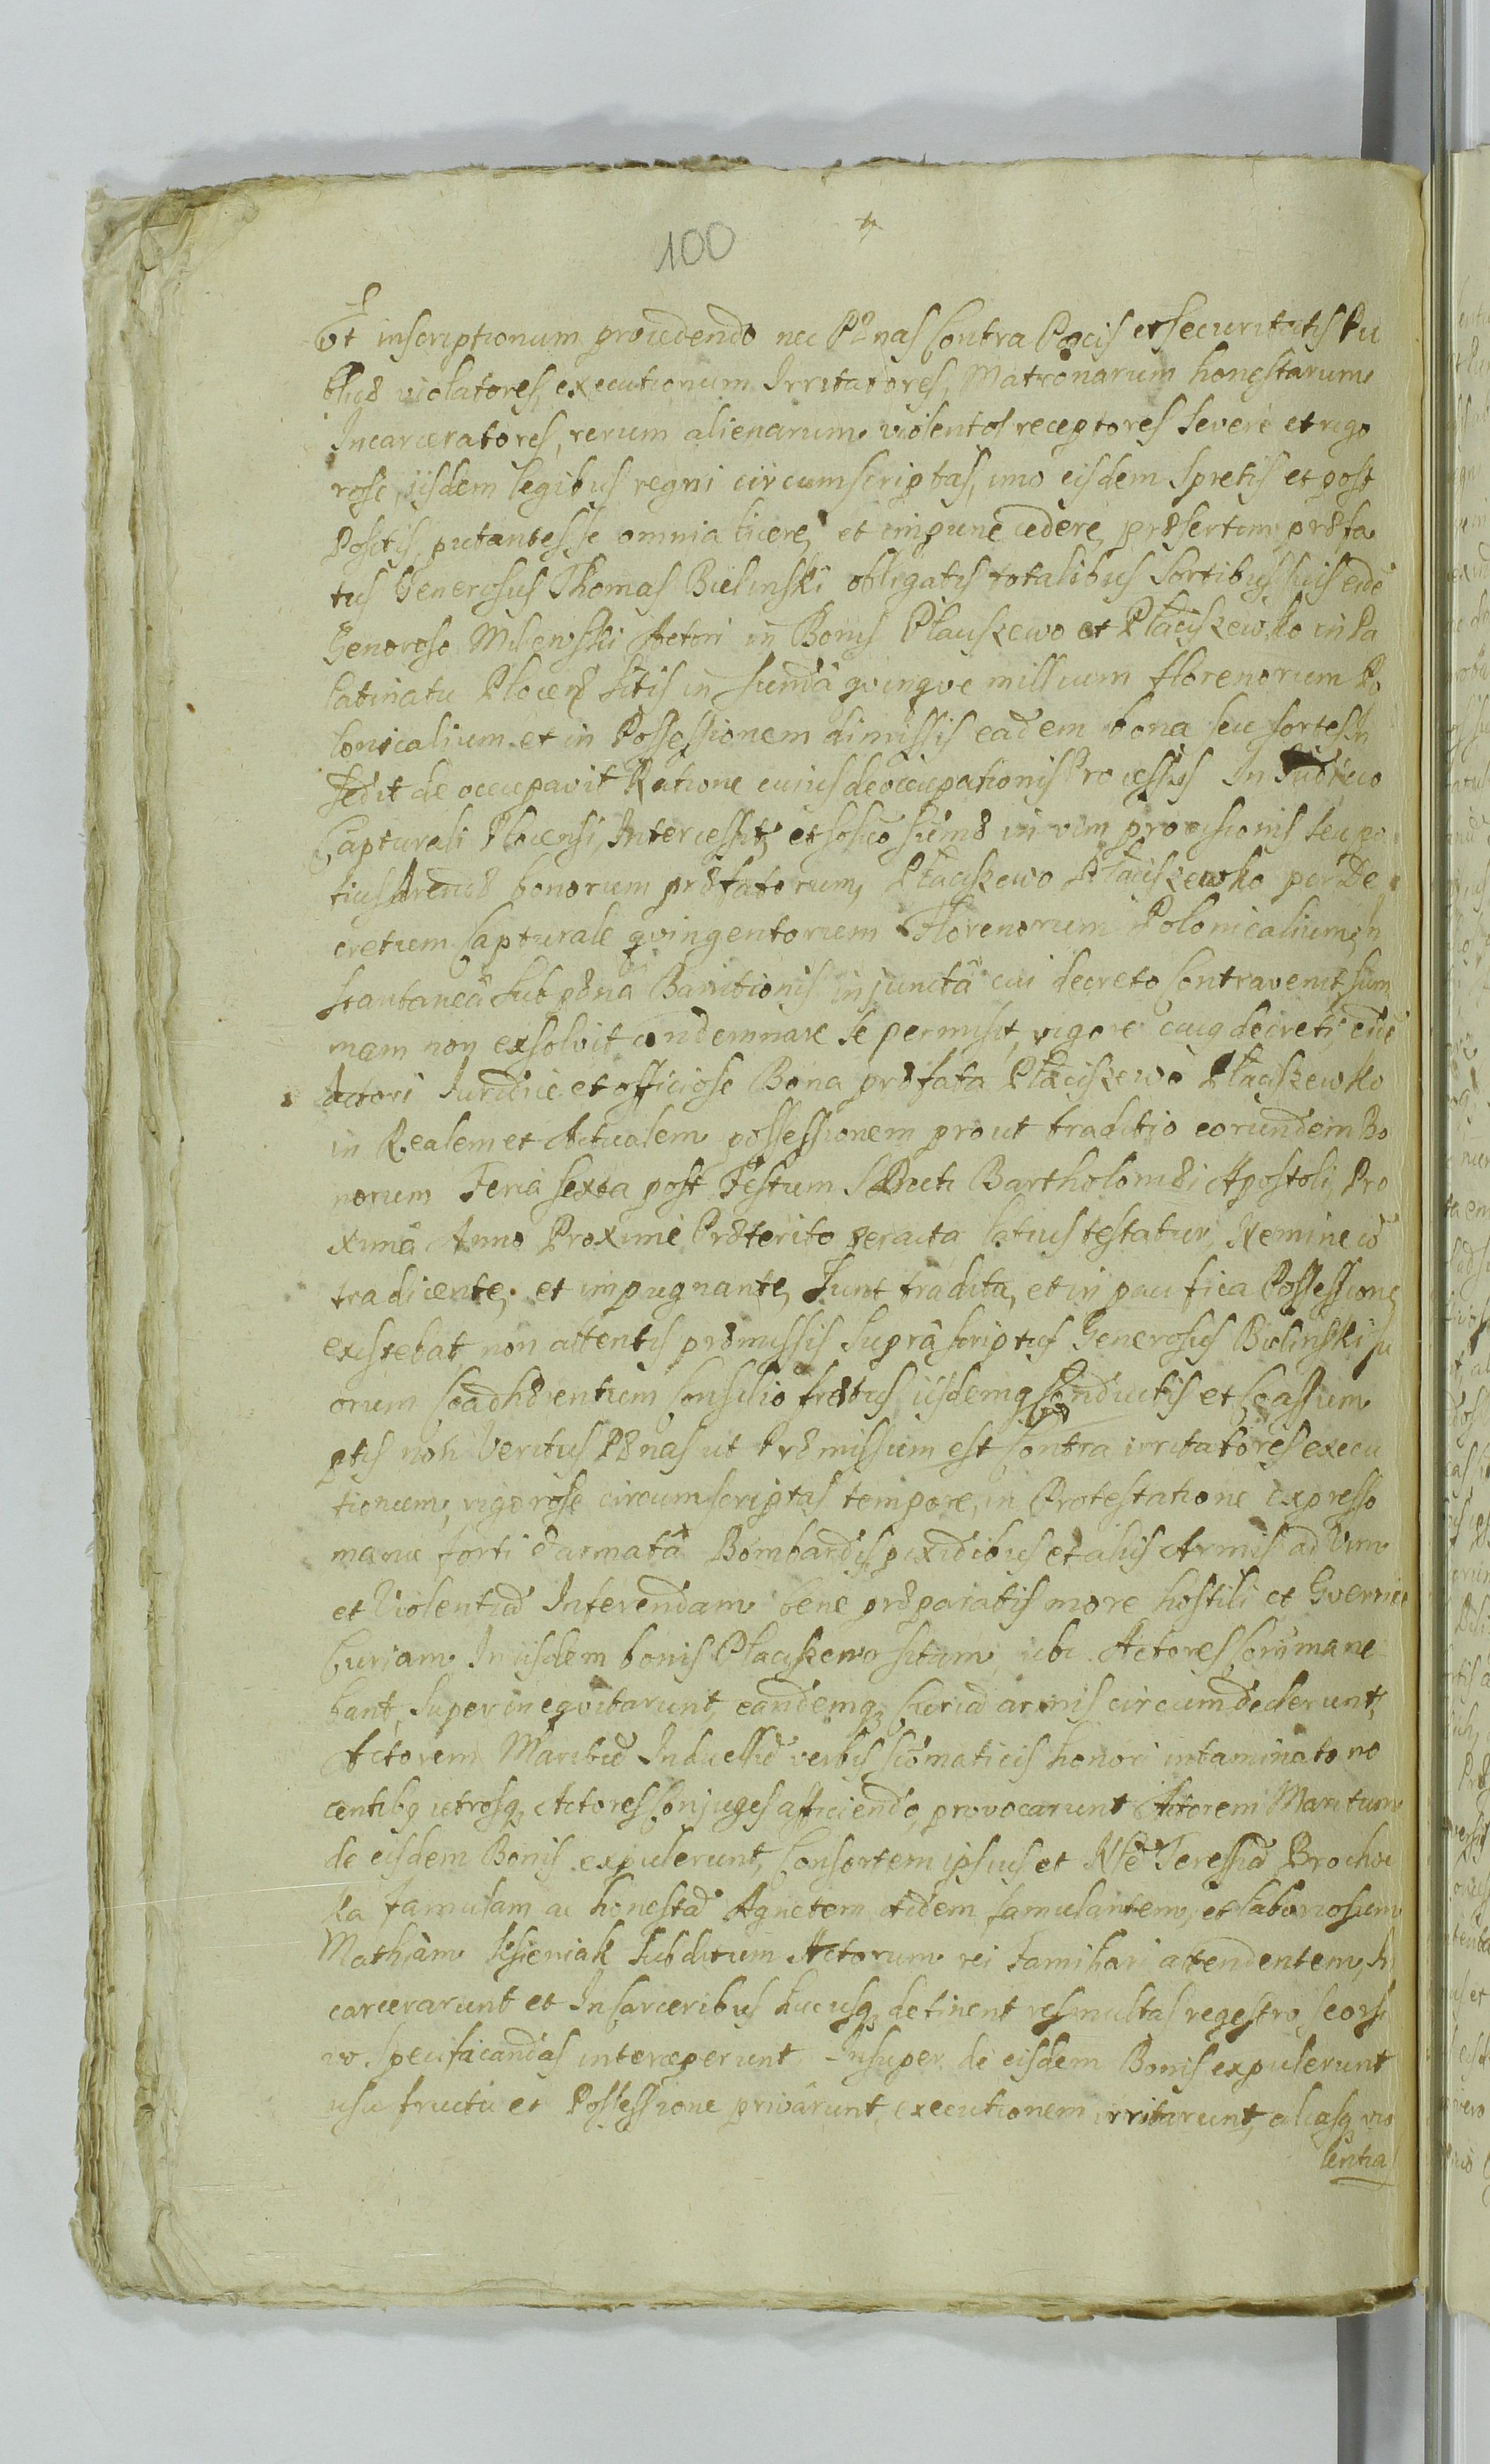 100
Et inscriptionum providendo nec Pænas Contra Pacis et securitatis Pu
blicæ violatores, executionum Irritatores, Matronarum honestarum
Incarceratores, rerum alienarum violentos receptores severe et rigo
rose, iisdem legibus regni circumscriptas, imo eisdem spretis et post
Positis, putantes se omnia licere, et impune cedere, præsertim præfa
tus Generosus Thomas Bielinski obligatis totalibus Sortibus suis eidē
Generoso Milewski Actori in Bonis Płaciszewo et Płaciszewko in Pa
latinatu Plocen̄ Sitis in summā qvinqve millium florenorum Po
lonicalium et in Possessionem dimissis eadem bona seu sortes In
sedit de occupavit Ratione cuius deoccupationis Processus In Judicio
Capturali Plocensi, Intercessit, et summæ in vim provisionis seu po
tius Arendæ bonorum præfatorum, Płaciszewo Płaciszewko per De
cretum Capturale qvingentorum Florenorum Polonicalium, In
stantaneâ sub pænâ Bannitionis injunctâ cui decreto Contravenit, sum
mam non exsolvit condemnare se permisit, vigore cuiq decreti, eidē
Actori Juridice et officiose Bona præfata Płaciszewo Płaciszewko
in Realem et Actualem possessionem prout traditio eorundem Bo
norum Feria sexta post Festum S Bartholomæi Apostoli, Pro
ximâ Anno Proxime Præterito peracta latius testatur, Nemine cō
tradicente, et impugnante, Sunt tradita, et in pacifica Possessione
existebat non attentis præmissis Suprâ scriptus Generosus Bielinski su
orum Coadhærentium Consilio frætus iisdemq Conductis et Coassum
ptis non Veritus Pænas ut Præmissum est Contra irritatores execu
tionum, rigorose circumscriptas tempore, in Protestatione expresso
manu forti & armatâ Bombardis, pixidibus et aliis Armis ad Vim
et Violentiā Inferendam bene præparatis more hostili et Gverrico
Curiam In iisdem bonis Płaciszewo sitam, ubi Actores Com̄mane
bant, Superineqvitarunt, eandemq Curiā armis circumdederunt,
Actorem Maritū Induellū verbis scōmaticis honori intaminato no
centibq utrosq Actores Conjuges afficiendo, provocarunt Actorem Maritum
de eisdem Bonis expulerunt, Consortem ipsius et Nlē Teressiā Brochoc
ka famulam ac honestā Agnetem itidem famulantem, et laboriosum
Mathiam Jesieniak Subditum Actorum rei Familiari attendentem, In
carcerarunt et In Carceribus hucusq detinent res multas regestro seorsi
vo specificandas interceperunt, Insuper de eisdem Bonis expulerunt
usu fructu et Possessione privârunt, executionem irritarunt, aliasq vio
lentia